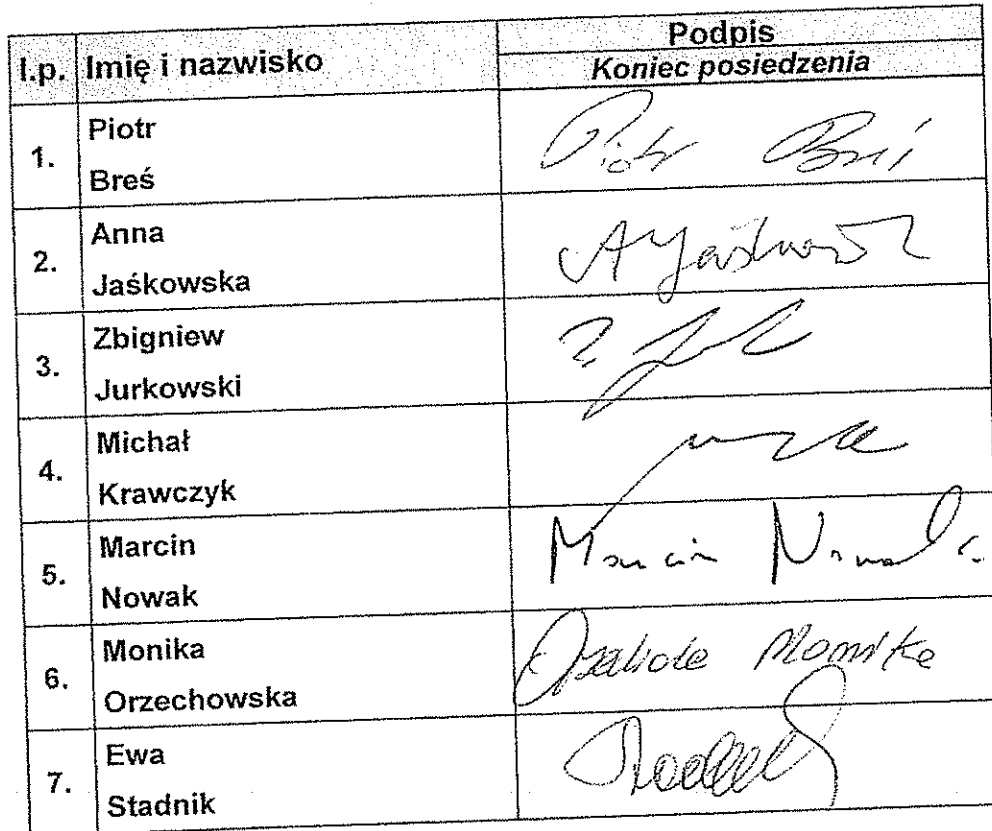 l.p. Imię i nazwisko Podpis
Koniec posiedzenia
1. Piotr
Breś
Piotr Breś
2. Anna
Jaśkowska
A Jaśkowsk
3. Zbigniew
Jurkowski
4. Michał
Krawczyk
5. Marcin
Nowak
Marcin Nowak
6. Monika
Orzechowska
Monika
7. Ewa
Stadnik